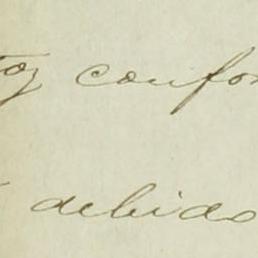 toy confor
debido